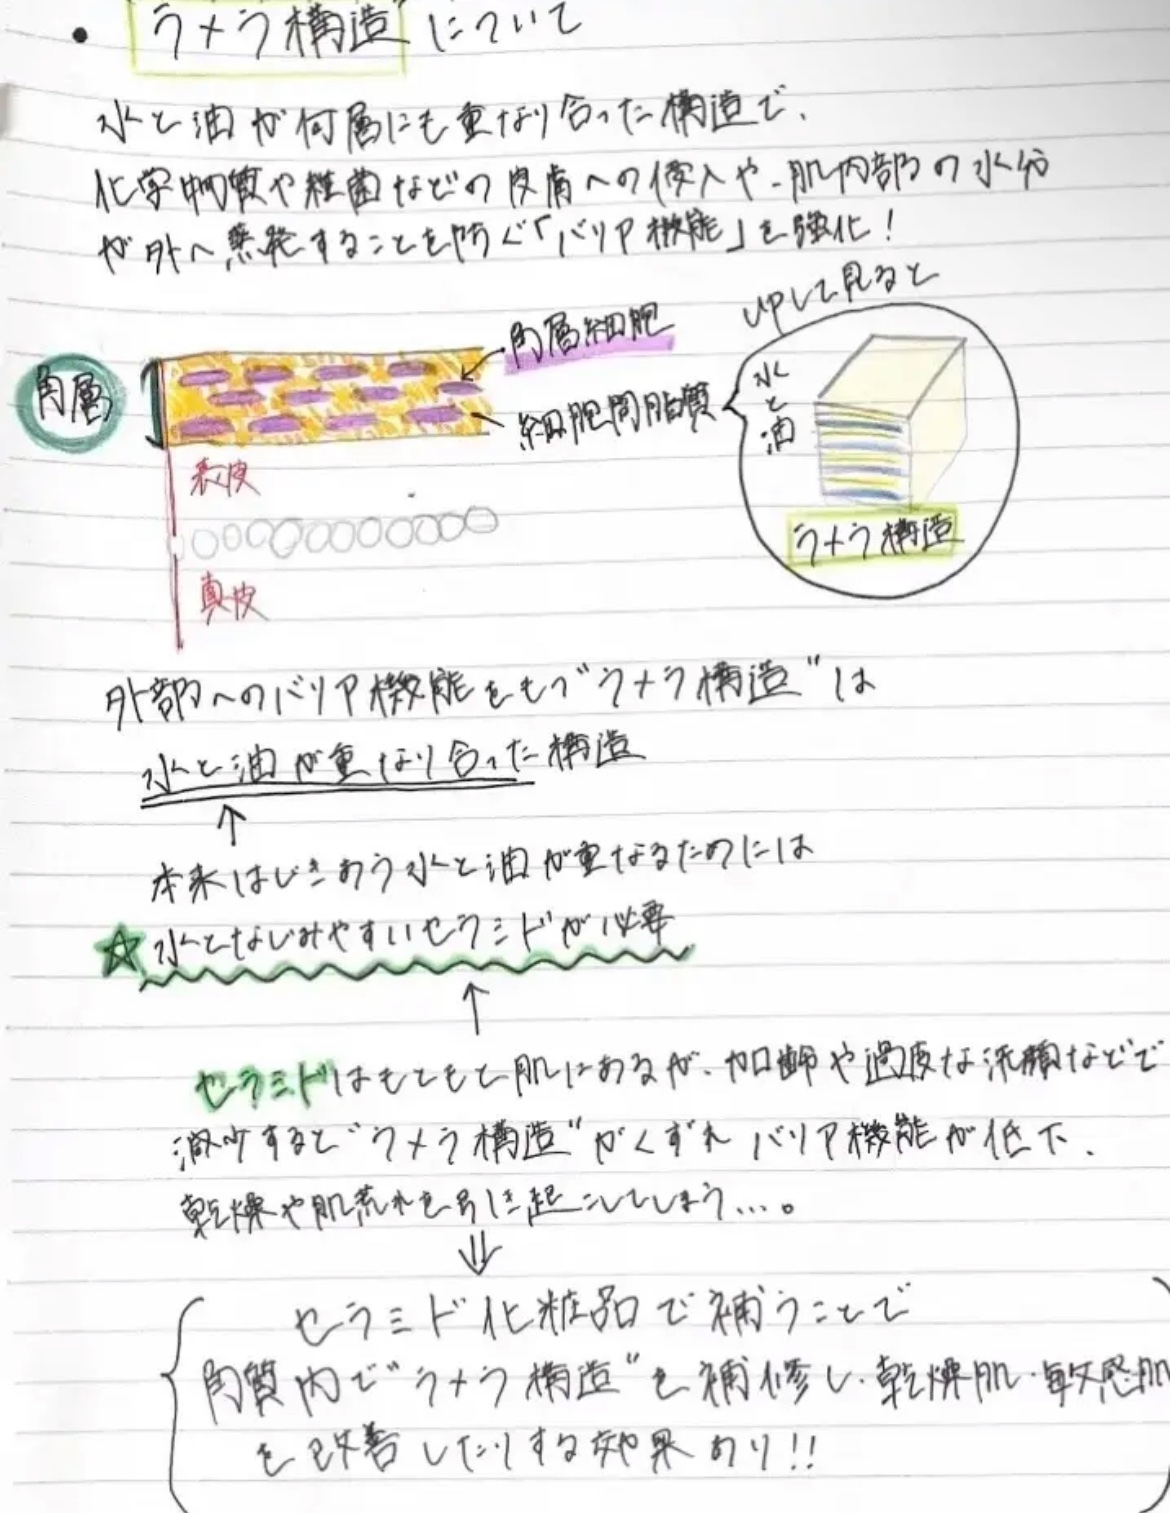 ・ラメラ構造について
水と油が何層にも重なり合った構造で、
化学物質や雑菌などの皮膚への侵入や、肌内部の水分
が外へ蒸発することを防ぐ「バリア機能」を強化!
UPして見ると
角層細胞
角層
水と油
細胞間脂質
表皮
ラメラ構造
真皮
外部へのバリア機能をもつ"ラメラ構造"は
水と油が重なり合った構造
↑
本来はじきあう水と油が重なるためには
☆水となじみやすいセラミドが必要
↑
セラミドはもともと肌にあるが、加齢や過度な洗顔などで
減少すると"ラメラ構造"がくずれバリア機能が低下、
乾燥や肌荒れを引き起こしてしまう…。
⇓
セラミド化粧品で補うことで
角質内で"ラメラ構造"を補修し、乾燥肌・敏感肌
を改善したりする効果あり!!